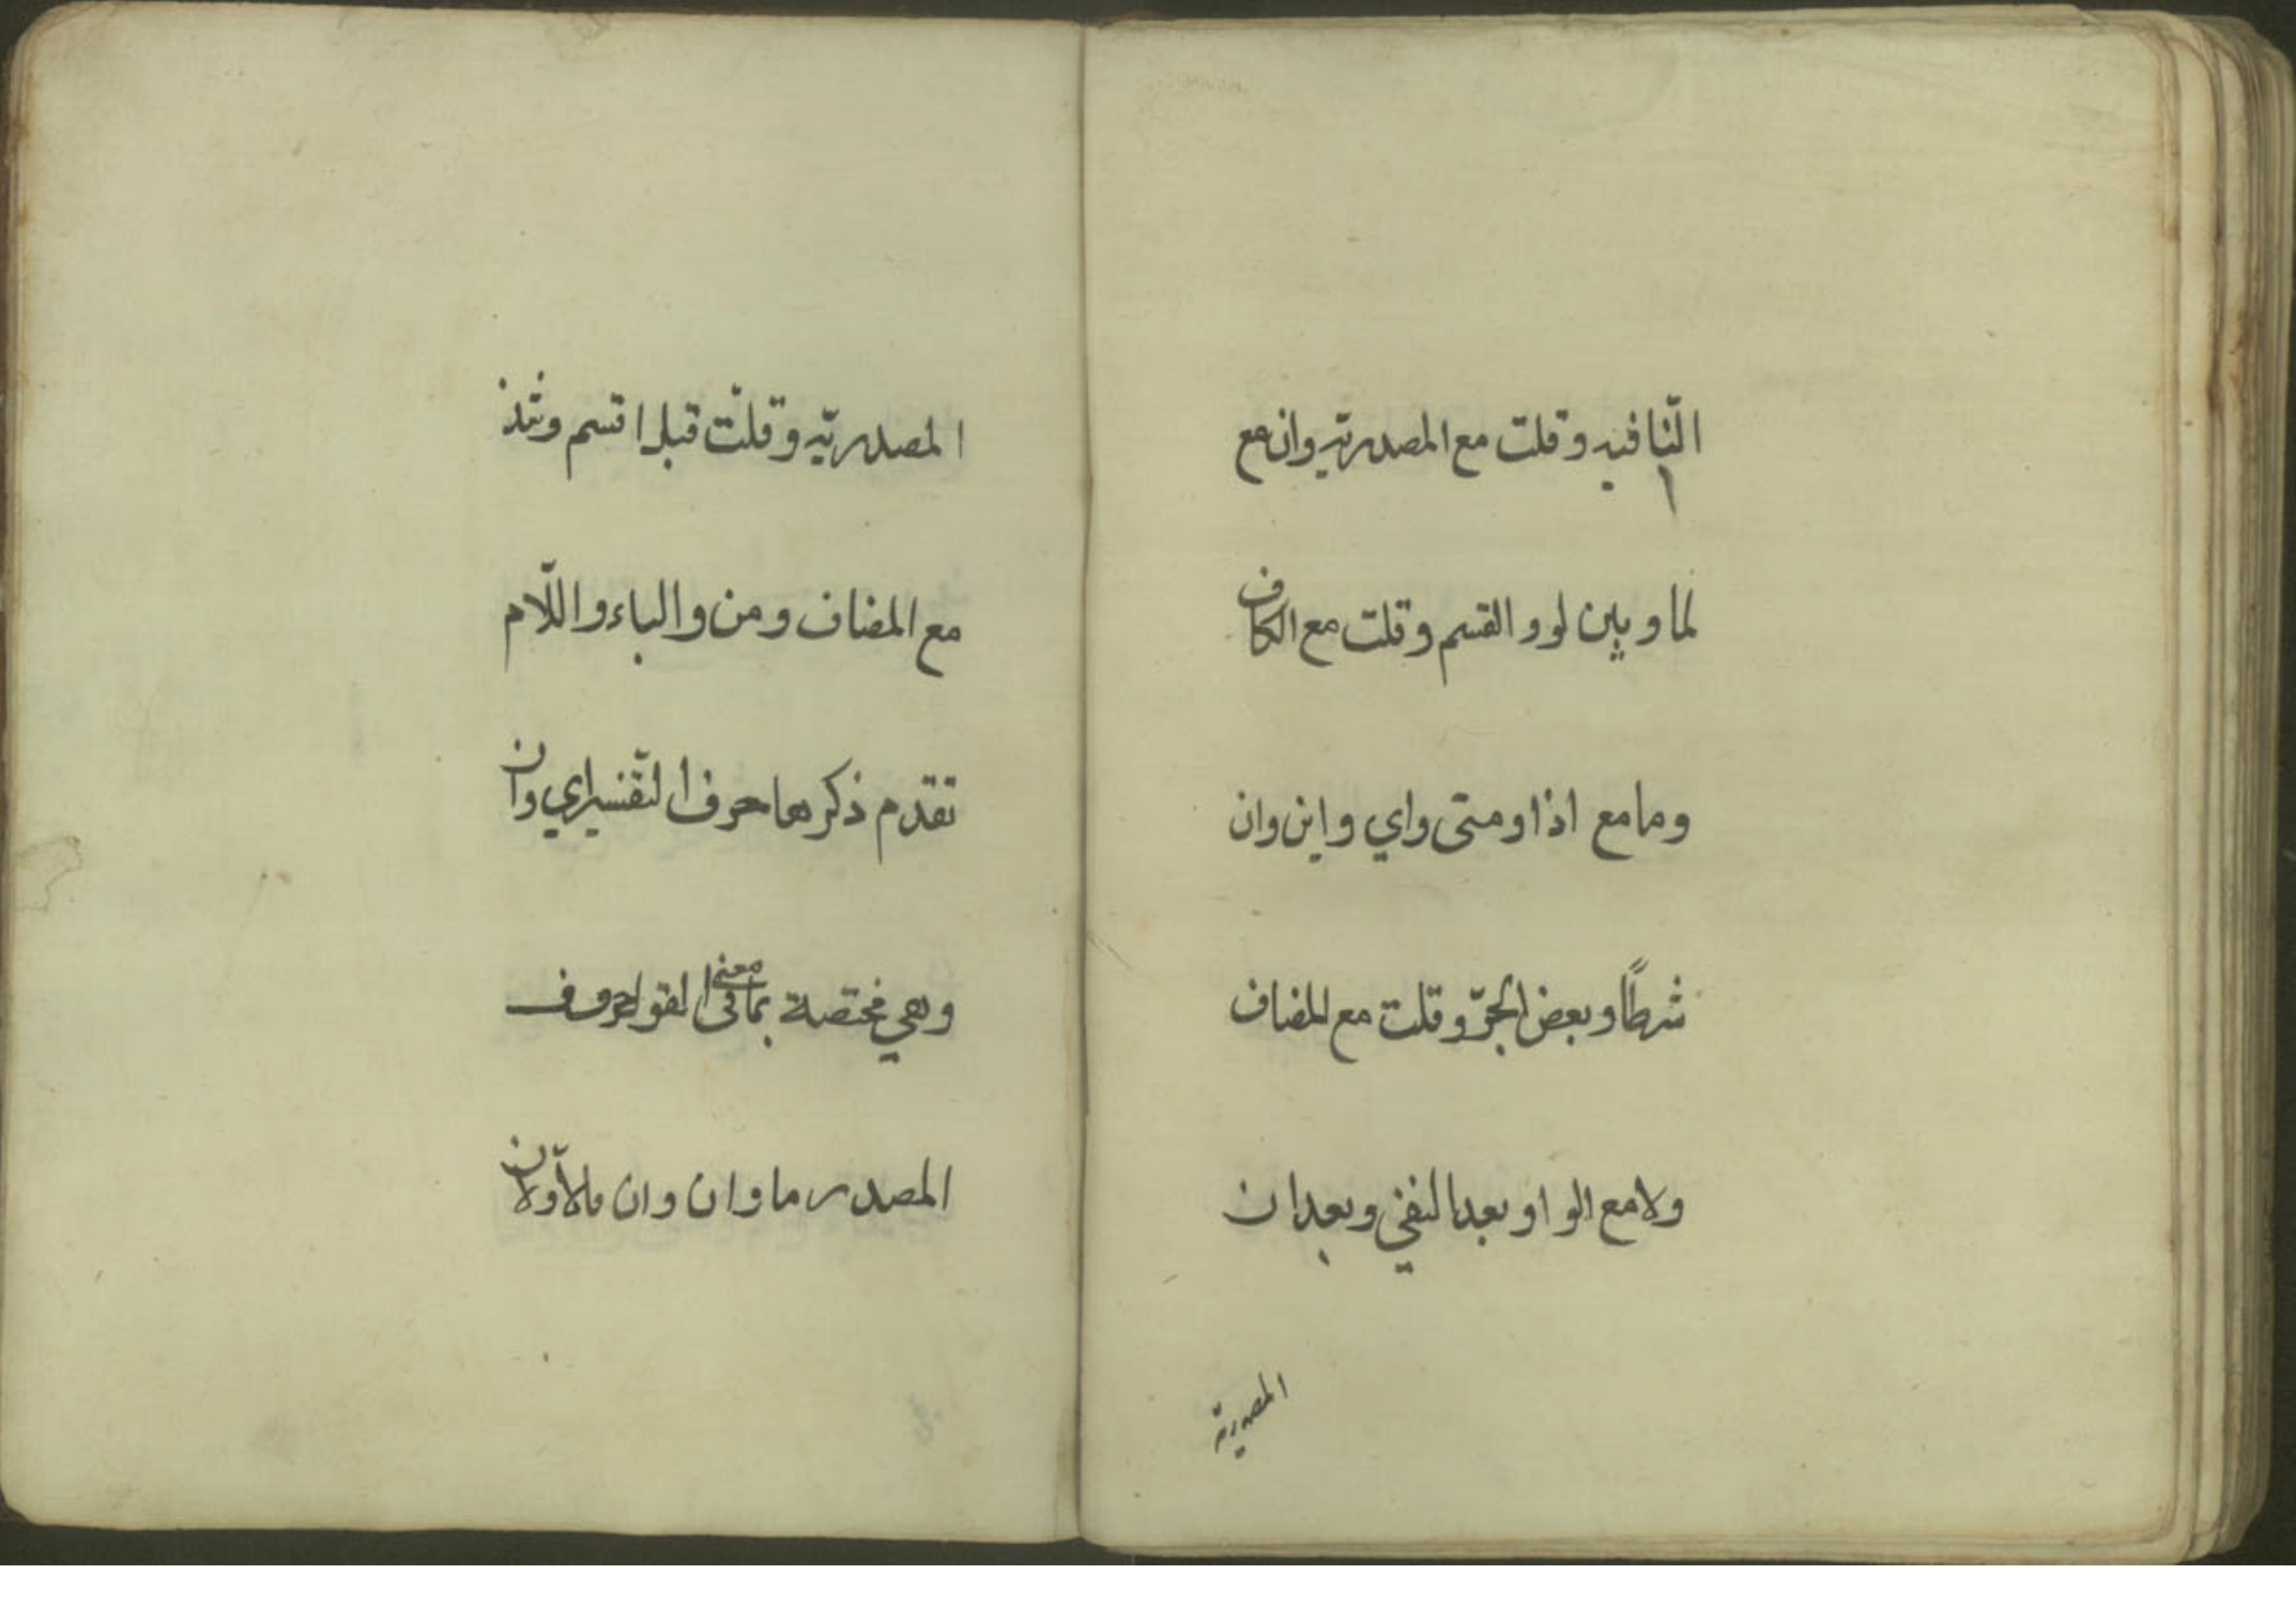 النّافيه وقلت مع المصدريّه وان مع
لما وبين لو والقسم وقلت مع الكاف
وما مع اذا ومتى واي واين وان
شرطًا وبعض الجرّ وقلت مع المضاف
ولا مع الواو بعد النفي وبعد ان
المصدريّة
المصدريّه وقلّت قبل اقسم وشذ
مع المضاف ومن والباء واللّام
تقدم ذكرها حرفا التّفسير اي وان
وهي مختصة بما في معنى القول حروف
المصدر ما وان وان